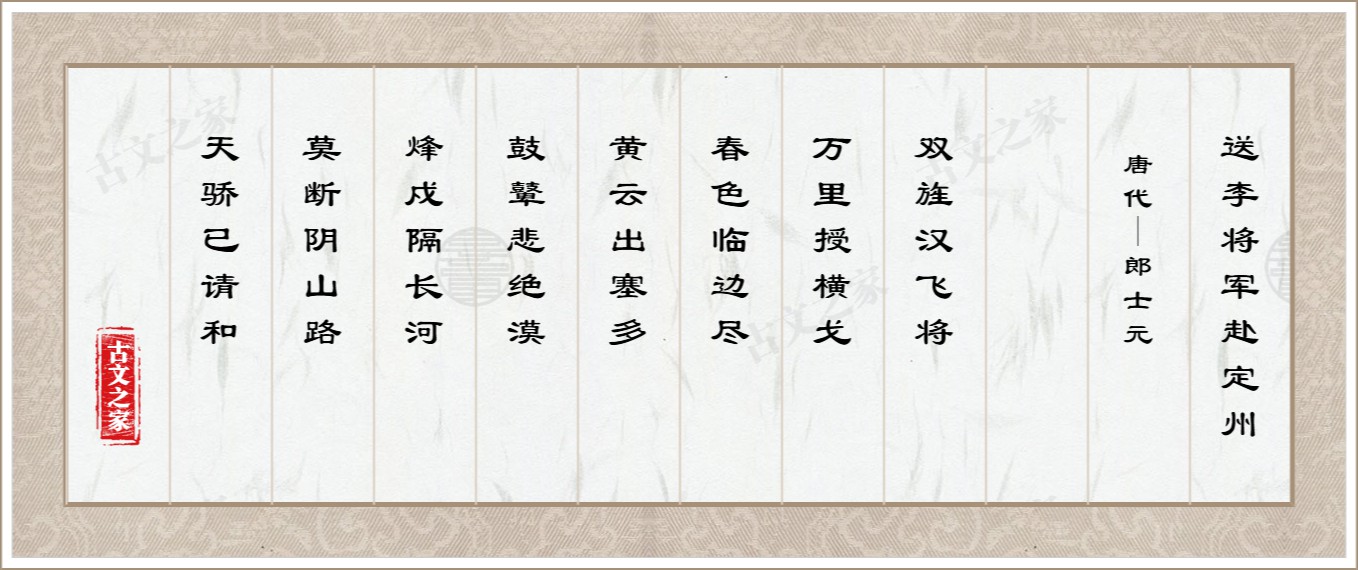 送李将军赴定州
唐代—郎士元
双旌汉飞将
万里授横戈
春色临边尽
黄云出塞多
鼓鼙悲绝漠
烽戍隔长河
莫断阴山路
天骄已请和
古文之家
古文之家
古文之家
古文之家